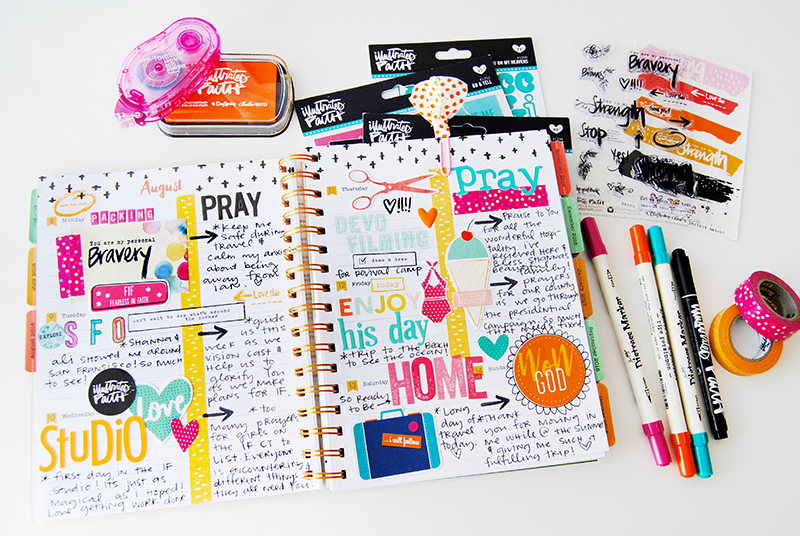 illustrated
FAITH
illustrated
FAITH
GO & TELL
illustrated
FAITH
You are my personal
Bravery
Love this
Strength
Stop
Strength
Yes!
August
8
Monday
PACKING
You are my personal
Bravery
FIF
FEARLESS IN FAITH
PRAY
*Keep me
safe during
travel &
calm my anxiety
about being
away from
Love this
9
Tuesday
EXPLORE
SFO
can't wait to see what's around
the corner
*Shanna &
ali showed me around
San Francisco! So much
to see!
*guide
us this
week as we
vision cast &
Help us to
glorify you
as we make
plans for IF.
illustrated
FAITH
love
10
Wednesday
STUDIO
*first day in the IF
Studio! It's just as
magical as I hoped!
Love getting work done.
*too
Many prayers
for girls on
the IF CT to
List. Everyone
is encountering
different things.
they all need you.
Thursday
DEVO
FILMING
done & done
for Revival camp
pray
Praise to you
for all the
wonderful Hosp-
tality I've
recieved here &
Bless Shanna's
Beautiful
family!
Friday
today
ENJOY
his day
*trip to the Beach
to see the ocean!
prayers
for our country
as we go through
the presidential
campaigns. So much
13
Saturday
So Ready
to Be
HOME
12
Sunday
WOW
GOD
i will follow
*Long
day of
travel
today.
*Thank
you for moving in
me while @ the Summit
& giving me such a
fulfilling trip!